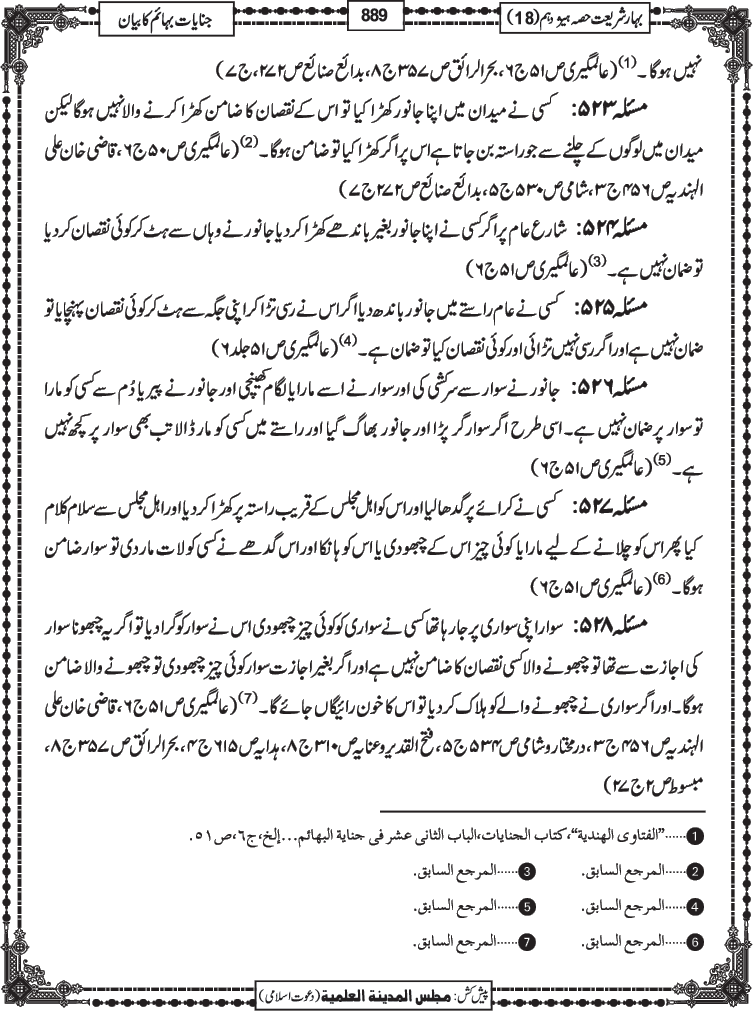 بہارِ شریعت حصہ ہیژدہم (18)
889
جنایات بہائم کا بیان
نہیں ہوگا۔(1) (عالمگیری ص۵۱ ج۶، بحرالرائق ص۳۵۷ ج۸، بدائع صنائع ص۲۷۲، ج۷)
مسئلہ ۵۲۳: کسی نے میدان میں اپنا جانور کھڑا کیا تو اس کے نقصان کا ضامن کھڑا کرنے والا نہیں ہوگا لیکن
میدان میں لوگوں کے چلنے سے جو راستہ بن جاتا ہے اس پر اگر کھڑا کیا تو ضامن ہوگا۔(2) (عالمگیری ص۵۰ ج۶، قاضی خان علی
الہندیہ ص۴۵۶ ج۳، شامی ص۵۳۰ ج۵، بدائع صنائع ص۲۷۲ ج۷)
مسئلہ ۵۲۴: شارع عام پر اگر کسی نے اپنا جانور بغیر باندھے کھڑا کر دیا جانور نے وہاں سے ہٹ کر کوئی نقصان کر دیا
تو ضمان نہیں ہے۔(3) (عالمگیری ص۵۱ ج۶)
مسئلہ ۵۲۵: کسی نے عام راستے میں جانور باندھ دیا اگر اس نے رسی تڑا کر اپنی جگہ سے ہٹ کر کوئی نقصان پہنچایا تو
ضمان نہیں ہے اور اگر رسی نہیں تڑائی اور کوئی نقصان کیا تو ضمان ہے۔(4) (عالمگیری ص۵۱ جلد۶)
مسئلہ ۵۲۶: جانور نے سوار سے سرکشی کی اور سوار نے اسے مارا یا لگام کھینچی اور جانور نے پیر یا دُم سے کسی کو مارا
تو سوار پر ضمان نہیں ہے۔ اسی طرح اگر سوار گر پڑا اور جانور بھاگ گیا اور راستے میں کسی کو مار ڈالا تب بھی سوار پر کچھ نہیں
ہے۔(5) (عالمگیری ص۵۱ ج۶)
مسئلہ ۵۲۷: کسی نے کرائے پر گدھا لیا اور اس کو اہل مجلس کے قریب راستہ پر کھڑا کر دیا اور اہل مجلس سے سلام کلام
کیا پھر اس کو چلانے کے لیے مارا یا کوئی چیز اس کے چبھودی یا اس کو ہانکا اور اس گدھے نے کسی کو لات مار دی تو سوار ضامن
ہوگا۔(6) (عالمگیری ص۵۱ ج۶)
مسئلہ ۵۲۸: سوار اپنی سواری پر جا رہا تھا کسی نے سواری کو کوئی چیز چبھودی اس نے سوار کو گرا دیا تو اگر یہ چبھونا سوار
کی اجازت سے تھا تو چبھونے والا کسی نقصان کا ضامن نہیں ہے اور اگر بغیر اجازت سوار کوئی چیز چبھودی تو چبھونے والا ضامن
ہوگا۔ اور اگر سواری نے چبھونے والے کو ہلاک کر دیا تو اس کا خون رائیگاں جائے گا۔(7) (عالمگیری ص۵۱ ج۶، قاضی خان علی
الہندیہ ص۴۵۶ ج۳، درمختار و شامی ص۵۳۴ ج۵، فتح القدیر و عنایہ ص۳۱۰ ج۸، ہدایہ ص۶۱۵ ج۴، بحرالرائق ص۳۵۷ ج۸،
مبسوط ص۲ ج۲۷)
1 ......"الفتاوی الهندية"، كتاب الجنايات، الباب الثانی عشر فی جناية البهائم... إلخ، ج٦، ص٥١.
2 ......المرجع السابق. 3 ......المرجع السابق.
4 ......المرجع السابق. 5 ......المرجع السابق.
6 ......المرجع السابق. 7 ......المرجع السابق.
پیش کش: مجلس المدینة العلمیة (دعوت اسلامی)